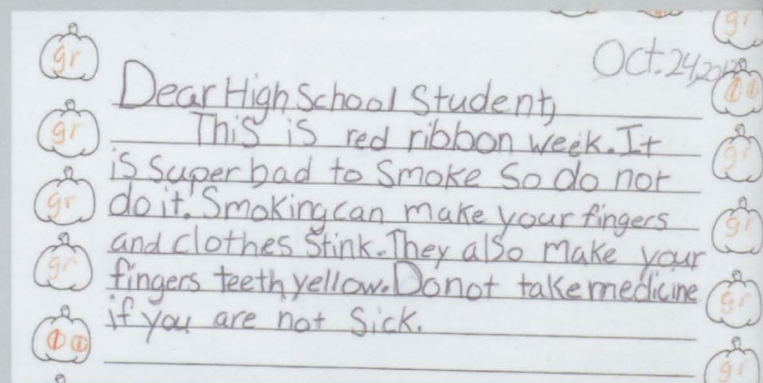 Oct. 24, 20
Dear High School Student,
This is red ribbon week. It
is super bad to Smoke So do not
do it. Smoking can make your fingers
and clothes Stink. They also make your
fingers teeth yellow. Do not take medicine
if you are not Sick.
gr
gr
gr
gr
gr
gr
gr
gr
gr